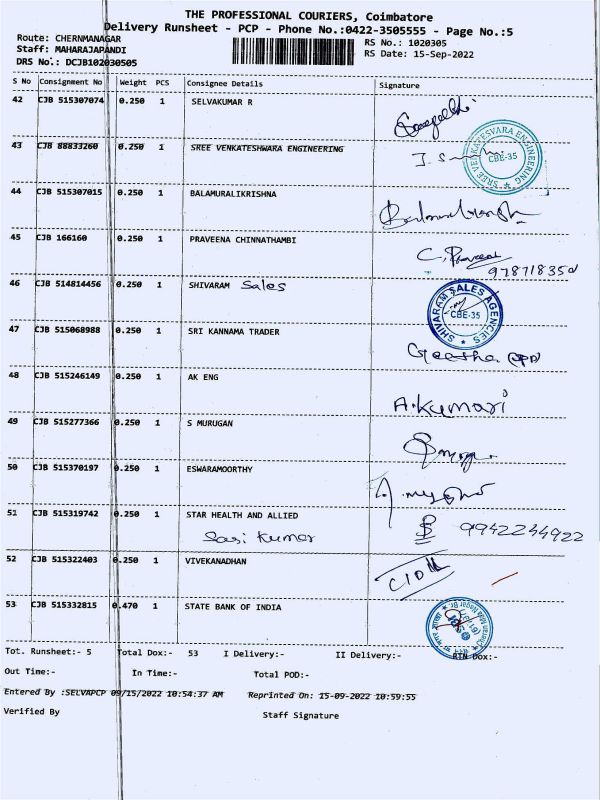 THE PROFESSIONAL COURIERS, Coimbatore
Delivery Runsheet - PCP - Phone No.:0422-3505555 - Page No.:5
Route: CHERNMANAGAR
RS No.: 1020305
Staff: MAHARAJAPANDI
RS Date: 15-Sep-2022
DRS No.: DCJB102030505
S No Consignment No Weight PCS Consignee Details Signature
42 CJB 515307074 0.250 1 SELVAKUMAR R
43 CJB 88833260 0.250 1 SREE VENKATESHWARA ENGINEERING
SREE VENKATESVARA ENGINEERING CBE-35
44 CJB 515307015 0.250 1 BALAMURALIKRISHNA
45 CJB 166160 0.250 1 PRAVEENA CHINNATHAMBI C. Praveena
978718350
46 CJB 514814456 0.250 1 SHIVARAM Sales
SHIVARAM SALES AGENCIES CBE-35
47 CJB 515068988 0.250 1 SRI KANNAMA TRADER
48 CJB 515246149 0.250 1 AK ENG A.Kumari
49 CJB 515277366 0.250 1 S MURUGAN
50 CJB 515370197 0.250 1 ESWARAMOORTHY
51 CJB 515319742 0.250 1 STAR HEALTH AND ALLIED
Sasi Kumar 9942244922
52 CJB 515322403 0.250 1 VIVEKANADHAN
53 CJB 515332815 0.470 1 STATE BANK OF INDIA
Tot. Runsheet:- 5 Total Dox:- 53 I Delivery:- II Delivery:- RTN Dox:-
Out Time:- In Time:- Total POD:-
Entered By :SELVAPCP 09/15/2022 10:54:37 AM Reprinted On: 15-09-2022 10:59:55
Verified By Staff Signature